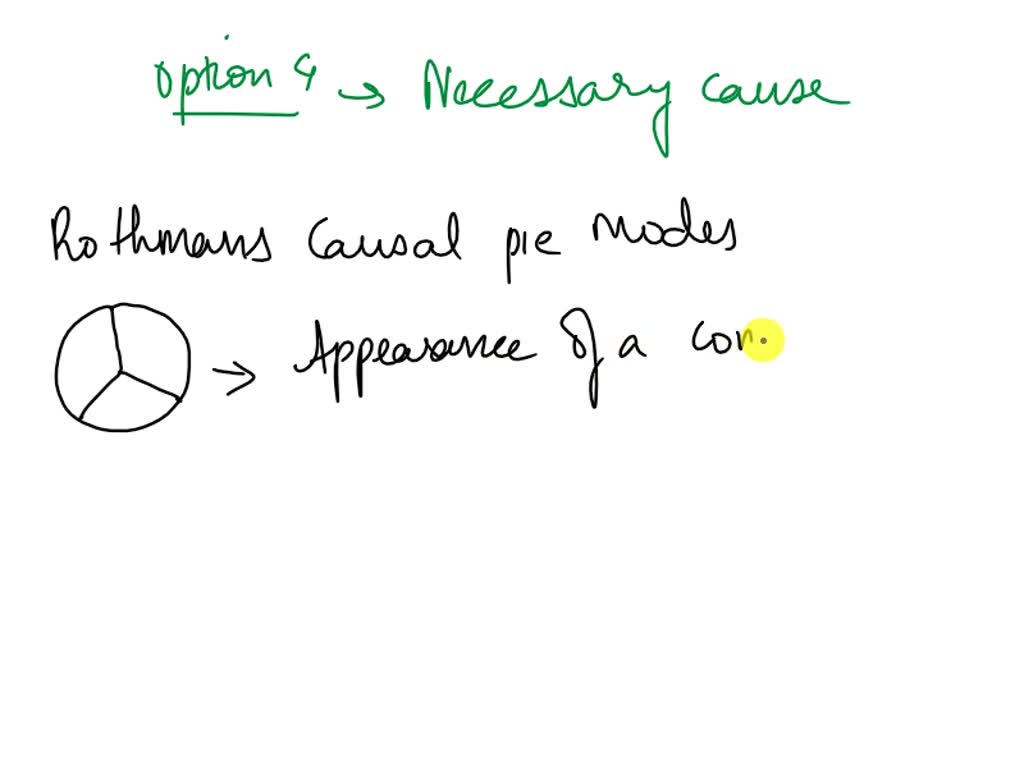 Option 4 → Necessary cause
Rothmans Causal pie modes
→ Appearance of a con